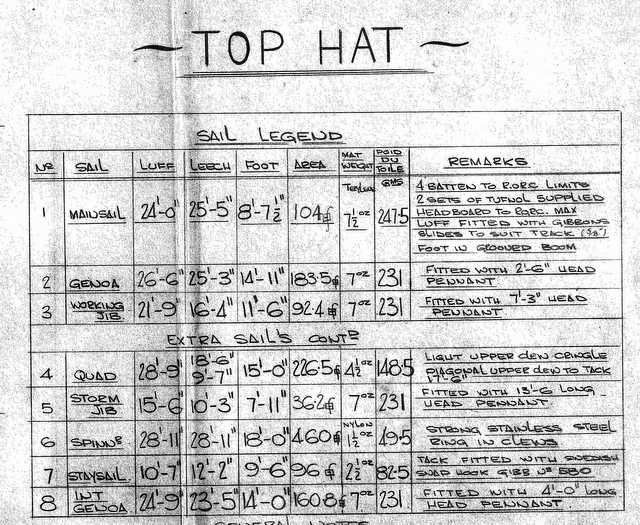 ~ TOP HAT ~
SAIL LEGEND
No SAIL LUFF LEECH FOOT AREA MAT WEIGHT POID DU TOILE REMARKS
Terylene GMS
1 MAINSAIL 24'-0" 25'-5" 8'-7½" 104 7½oz 247.5
4 BATTEN TO R.O.R.C. LIMITS
2 SETS OF TUFNOL SUPPLIED
HEADBOARD TO R.O.R.C. MAX
LUFF FITTED WITH GIBBONS
SLIDES TO SUIT TRACK (⅝")
FOOT IN GROOVED BOOM
2 GENOA 26'-6" 25'-3" 14'-11" 183.5 7oz 231 FITTED WITH 2'-6" HEAD
PENNANT
3 WORKING JIB 21'-9" 16'-4" 11'-6" 92.4 7oz 231 FITTED WITH 7'-3" HEAD
PENNANT
EXTRA SAIL'S CONTD
4 QUAD 28'-9" 18'-6" 9'-7" 15'-0" 226.5 4½oz 148.5 LIGHT UPPER CLEW CRINGLE
DIAGONAL UPPER CLEW TO TACK
17'-6"
5 STORM JIB 15'-6" 10'-3" 7'-11" 36.2 7oz 231 FITTED WITH 13'-6 LONG
HEAD PENNANT
6 SPINNR 28'-11" 28'-11" 18'-0" 460 NYLON 1½oz 49.5 STRONG STAINLESS STEEL
RING IN CLEWS
7 STAYSAIL 10'-7" 12'-2" 9'-6" 96 2½oz 82.5 TACK FITTED WITH SWEDISH
SNAP HOOK GIBB No 580
8 INT GENOA 24'-9" 23'-5" 14'-0" 160.8 7oz 231 FITTED WITH 4'-0" LONG
HEAD PENNANT
GENERAL NOTES